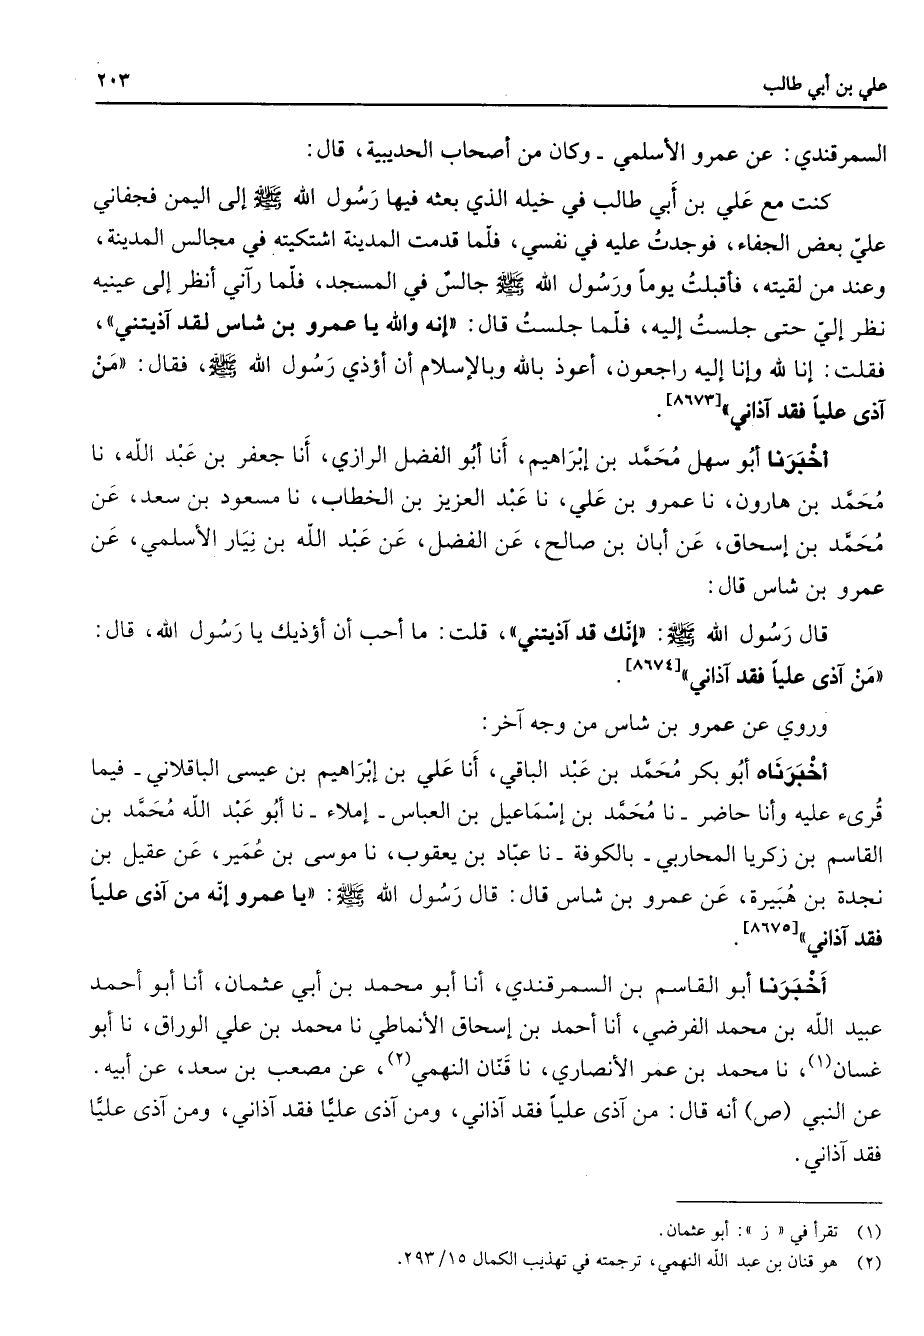 علي بن أبي طالب ٢٠٣
السمرقندي: عن عمرو الأسلمي ـ وكان من أصحاب الحديبية، قال:
كنت مع عَلي بن أَبي طالب في خيله الذي بعثه فيها رَسُول الله ﷺ إلى اليمن فجفاني
عليّ بعض الجفاء، فوجدتُ عليه في نفسي، فلّما قدمت المدينة اشتكيته في مجالس المدينة،
وعند من لقيته، فأقبلتُ يوماً ورَسُول الله ﷺ جالسٌ في المسجد، فلّما رآني أنظر إلى عينيه
نظر إليّ حتى جلستُ إليه، فلّما جلستُ قال: «إنه والله يا عمرو بن شاس لقد آذيتني»،
فقلت: إنا لله وإنا إليه راجعون، أعوذ بالله وبالإسلام أن أؤذي رَسُول الله ﷺ، فقال: «مَنْ
آذى علياً فقد آذاني»[٨٦٧٣].
أخْبَرَنا أبُو سهل مُحَمَّد بن إبْرَاهيم، أَنا أبُو الفضل الرازي، أَنا جعفر بن عَبْد الله، نا
مُحَمَّد بن هارون، نا عمرو بن عَلي، نا عَبْد العزيز بن الخطاب، نا مسعود بن سعد، عَن
مُحَمَّد بن إسحاق، عَن أبان بن صالح، عَن الفضل، عَن عَبْد الله بن نِيَار الأسلمي، عَن
عمرو بن شاس قال:
قال رَسُول الله ﷺ: «إنّك قد آذيتني»، قلت: ما أحب أن أؤذيك يا رَسُول الله، قال:
«مَنْ آذى علياً فقد آذاني»[٨٦٧٤].
وروي عن عمرو بن شاس من وجه آخر:
أخْبَرَنَاه أبُو بكر مُحَمَّد بن عَبْد الباقي، أَنا عَلي بن إبْرَاهيم بن عيسى الباقلاني ـ فيما
قُرىء عليه وأنا حاضر ـ نا مُحَمَّد بن إسْمَاعيل بن العباس ـ إملاء ـ نا أبُو عَبْد الله مُحَمَّد بن
القاسم بن زكريا المحاربي ـ بالكوفة ـ نا عبّاد بن يعقوب، نا موسى بن عُمَير، عَن عقيل بن
نجدة بن هُبَيرة، عَن عمرو بن شاس قال: قال رَسُول الله ﷺ: «يا عمرو إنّه من آذى علياً
فقد آذاني»[٨٦٧٥].
أَخْبَرَنا أبو القاسم بن السمرقندي، أنا أبو محمد بن أبي عثمان، أنا أبو أحمد
عبيد الله بن محمد الفرضي، أنا أحمد بن إسحاق الأنماطي نا محمد بن علي الوراق، نا أبو
غسان(١)، نا محمد بن عمر الأنصاري، نا قَنّان النهمي(٢)، عن مصعب بن سعد، عن أبيه.
عن النبي (ص) أنه قال: من آذى علياً فقد آذاني، ومن آذى عليًّا فقد آذاني، ومن آذى عليًّا
فقد آذاني.
(١) تقرأ في « ز »: أبو عثمان.
(٢) هو قنان بن عبد الله النهمي، ترجمته في تهذيب الكمال ٢٩٣/١٥.